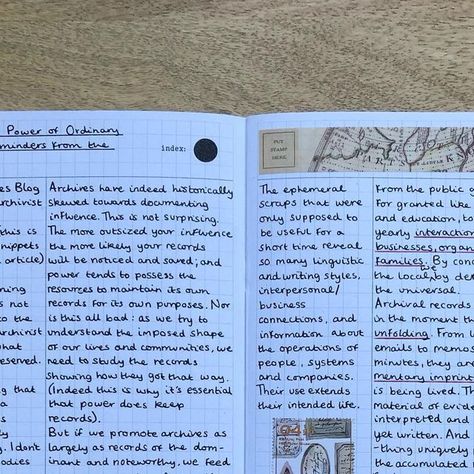 Power of Ordinary
minders from the
index:
es Blog
rchivist
his is
nippets
article)
ning
s not
to the
rchivist
hat
eserved.
ng that
s a
ng
y. I don't
odies
Archives have indeed historically
skewed towards documenting
influence. This is not surprising.
The more outsized your influence
the more likely your records
will be noticed and saved; and
power tends to possess the
resources to maintain its own
records for its own purposes. Nor
is this all bad: as we try to
understand the imposed shape
of our lives and communities, we
need to study the records
showing how they got that way.
(Indeed this is why it's essential
that power does keep
records).
But if we promote archives as
largely as records of the dom-
inant and noteworthy, we feed
PUT
STAMP
HERE
The ephemeral
scraps that were
only supposed to
be useful for a
short time reveal
so many linguistic
and writing styles,
interpersonal/
business
connections, and
information about
the operations of
people, systems
and companies.
Their use extends
their intended life.
From the public s
For granted like
and education, to
yearly interaction
businesses, organ
families. By conc
we
the local, by de
the universal.
Archival records
in the moment th
unfolding. From
emails to memo
minutes, they are
mentary imprint
is being lived. Th
material of evid
interpreted and
yet written. And
-thing uniquely
the accumulat